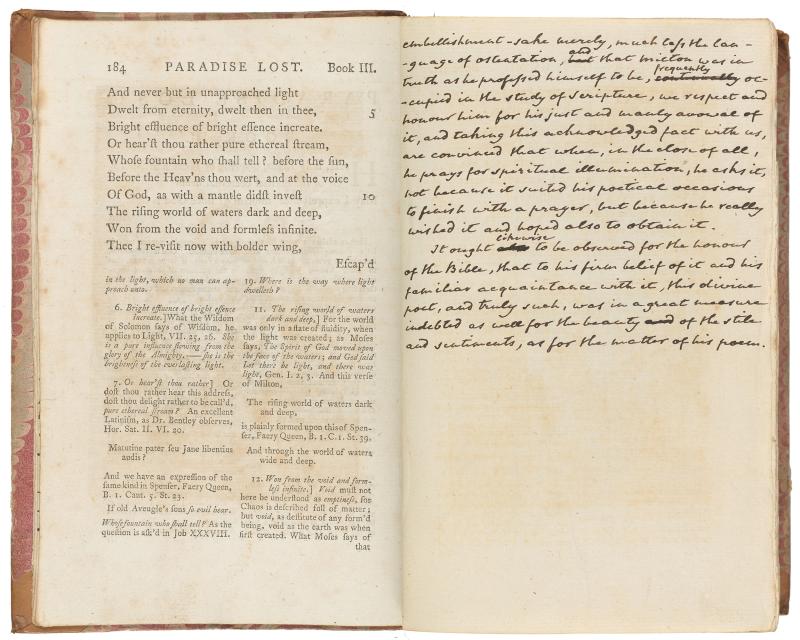 184 PARADISE LOST. Book III.
And never but in unapproached light
Dwelt from eternity, dwelt then in thee, 5
Bright effluence of bright eſſence increate.
Or hear'ſt thou rather pure ethereal ſtream,
Whoſe fountain who ſhall tell? before the ſun,
Before the Heav'ns thou wert, and at the voice
Of God, as with a mantle didſt inveſt 10
The riſing world of waters dark and deep,
Won from the void and formleſs infinite.
Thee I re-viſit now with bolder wing,
Eſcap'd
in the light, which no man can ap-
proach unto.
6. Bright effluence of bright eſſence
increate.] What the Wiſdom
of Solomon ſays of Wiſdom, he
applies to Light, VII. 25, 26. She
is a pure influence flowing from the
glory of the Almighty,—ſhe is the
brightneſs of the everlaſting light.
7. Or hear'ſt thou rather] Or
doſt thou rather hear this addreſs,
doſt thou delight rather to be call'd,
pure ethereal ſtream? An excellent
Latiniſm, as Dr. Bentley obſerves,
Hor. Sat. II. VI. 20.
Matutine pater ſeu Jane libentius
audis?
And we have an expreſſion of the
ſame kind in Spenſer, Faery Queen,
B. 1. Cant. 5. St. 23.
If old Aveugle's ſons ſo evil hear.
Whoſe fountain who ſhall tell? As the
queſtion is aſk'd in Job XXXVIII.
19. Where is the way where light
dwelleth?
11. The riſing world of waters
dark and deep,] For the world
was only in a ſtate of fluidity, when
the light was created; as Moſes
ſays, The Spirit of God moved upon
the face of the waters; and God ſaid
Let there be light, and there was
light, Gen. I. 2, 3. And this verſe
of Milton,
The riſing world of waters dark
and deep,
is plainly formed upon this of Spen-
ſer, Faery Queen, B. 1. C. 1. St. 39.
And through the world of waters
wide and deep.
12. Won from the void and form-
leſs infinite.] Void muſt not
here be underſtood as emptineſs, for
Chaos is deſcribed full of matter;
but void, as deſtitute of any form'd
being, void as the earth was when
firſt created. What Moſes ſays of
that
embellishment-sake merely, much less the lan-
-guage of ostentation, but and that Milton was in
truth as he professed himself to be, continually frequently oc-
-cupied in the study of Scripture, we respect and
honour him for his just and manly avowal of
it, and taking this acknowledged fact with us,
are convinced that when, in the close of all,
he prays for spiritual illumination, he asks it,
not because it suited his poetical occasions
to finish with a prayer, but because he really
wished it and hoped also to obtain it.
It ought also likewise to be observed for the honour
of the Bible, that to his firm belief of it and his
familiar acquaintance with it, this divine
poet, and truly such, was in a great measure
indebted as well for the beauty and of the stile
and sentiments, as for the matter of his poem.